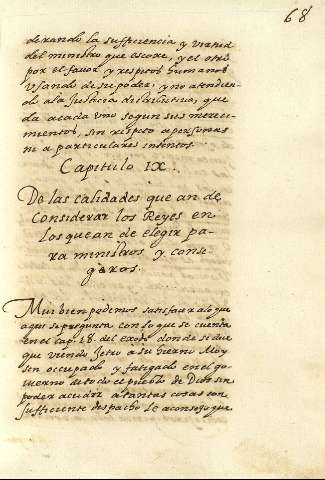 68
derando la sufficiencia y virtud
del ministro que escoxe, y el otro
por el favor y respetos humanos
usando de su poder, y no atendien-
do a la Justicia distributiva, que
da a cada uno segun sus mereci-
mientos, sin respeto a personas
ni a particulares intentos.
Capitulo IX.
De las calidades que an de
Considerar los Reyes en
los que an de elegir pa-
ra ministros y conse-
geros.
Mui bien podemos satisfacer a lo que
aqui se pregunta con lo que se cuenta
en el cap. 18. del exodo donde se dice
que viendo Jetro a su hierno Moy
sen occupado y fatigado en el go-
uierno de todo el pueblo de Dios sin
poder acudir a tantas cosas con
sufficiente despacho le aconsejo que